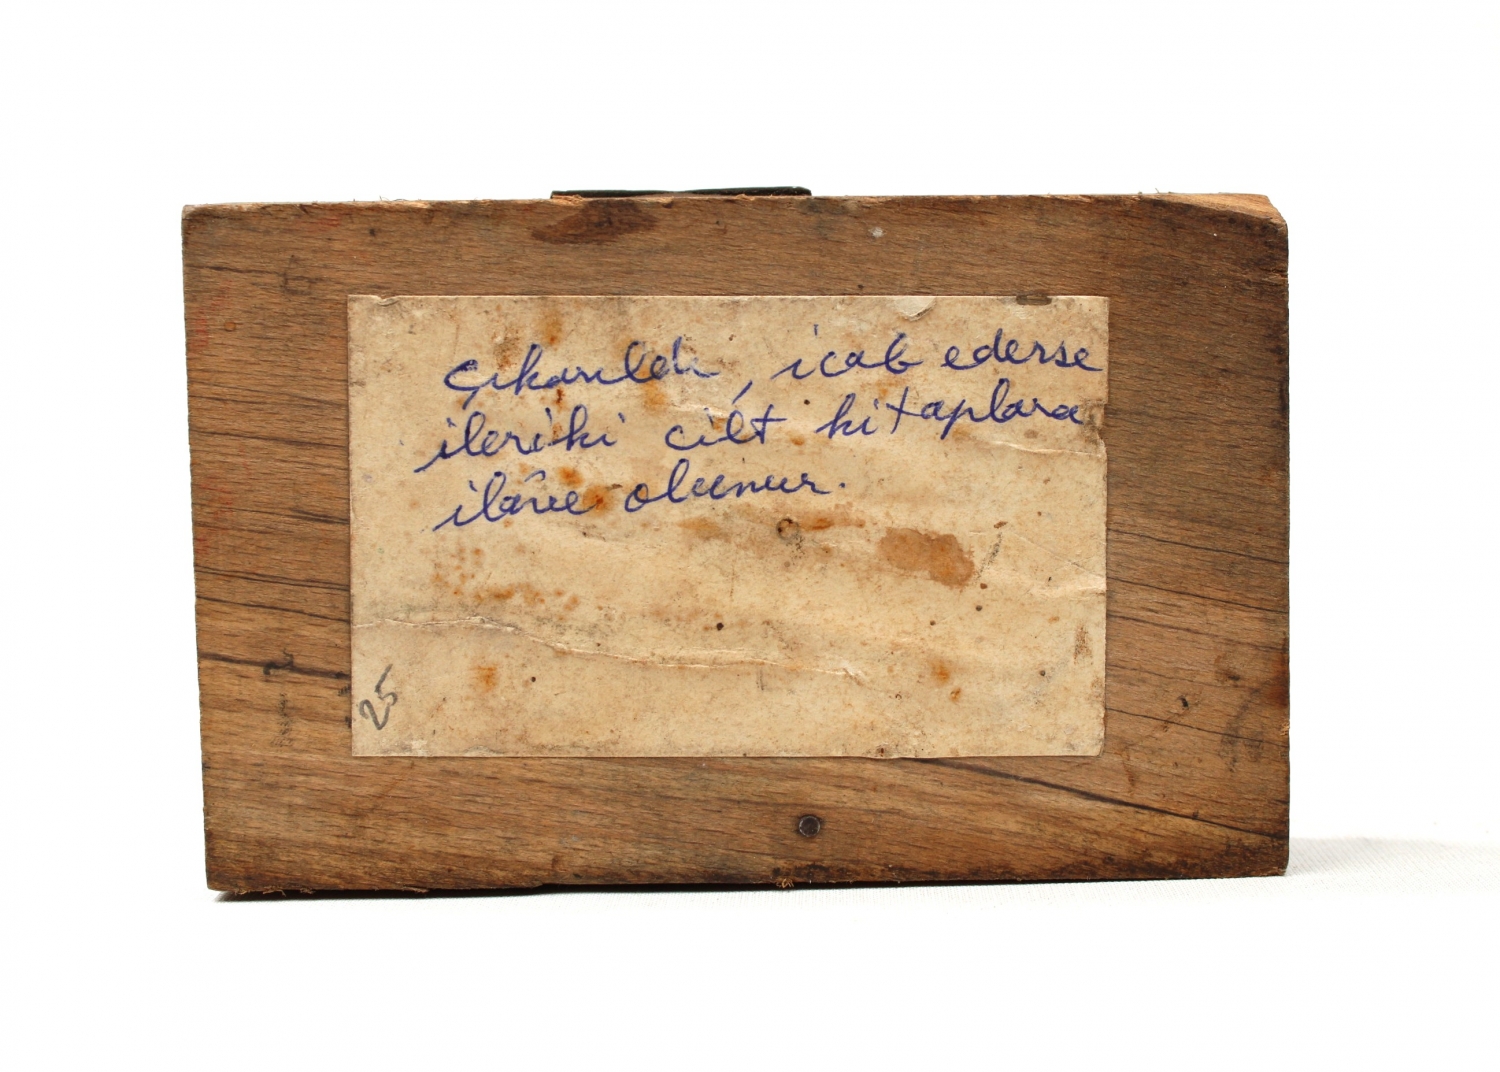 Çıkarıldı, icab ederse
ileriki cilt kitaplara
ilâve olunur.
25